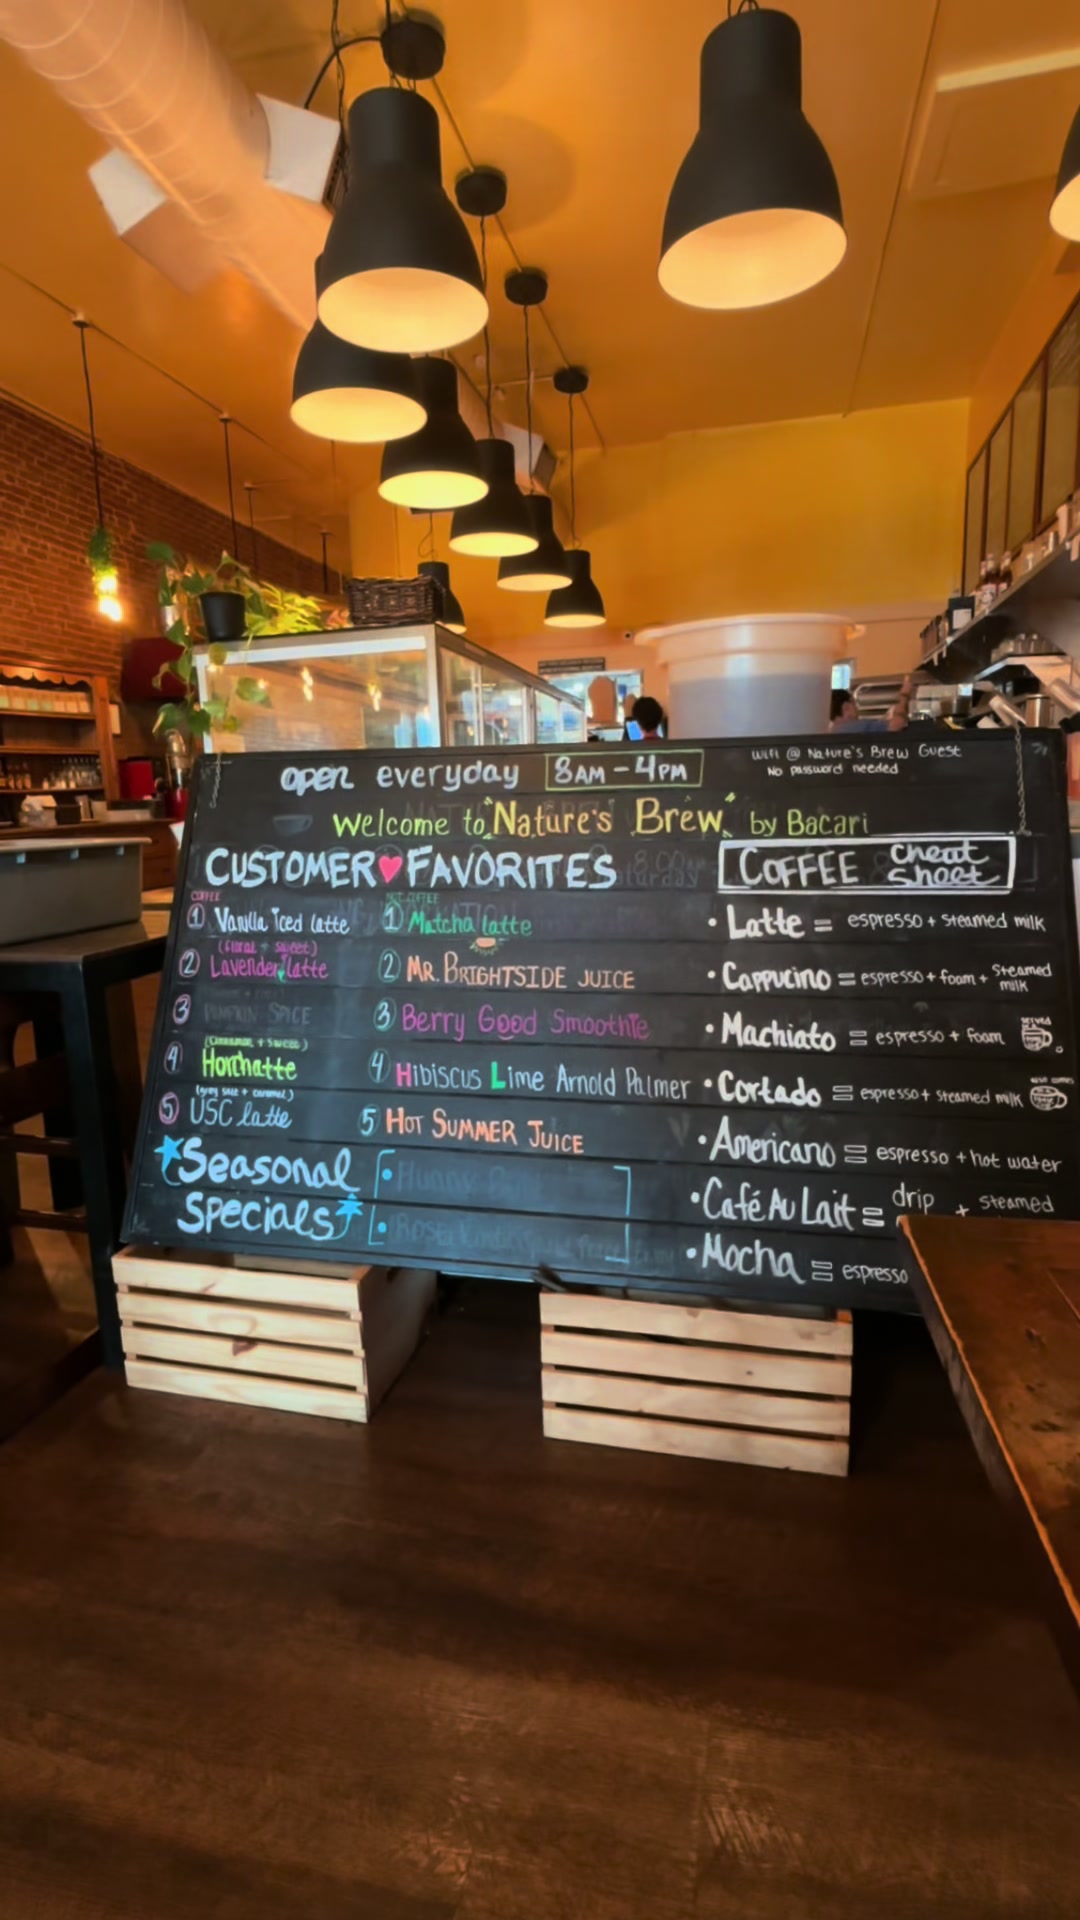 open everyday 8AM-4PM
WIFI @ Nature's Brew Guest
No password needed
Welcome to "Nature's Brew" by Bacari
CUSTOMER ♥ FAVORITES
COFFEE
① Vanilla iced latte
(floral + sweet)
② Lavender latte
③ PUMPKIN SPICE
(Cinnamon + sweet)
④ Horchatte
(grey salt + caramel)
⑤ USC latte
① Matcha latte
② MR. BRIGHTSIDE JUICE
③ Berry Good Smoothie
④ Hibiscus Lime Arnold Palmer
⑤ HOT SUMMER JUICE
★Seasonal
Specials★
COFFEE cheat sheet
• Latte = espresso + steamed milk
• Cappucino = espresso + foam + steamed milk
• Machiato = espresso + foam
SERVED
• Cortado = espresso + steamed milk
• Americano = espresso + hot water
• Café Au Lait = drip + steamed
• Mocha = espresso